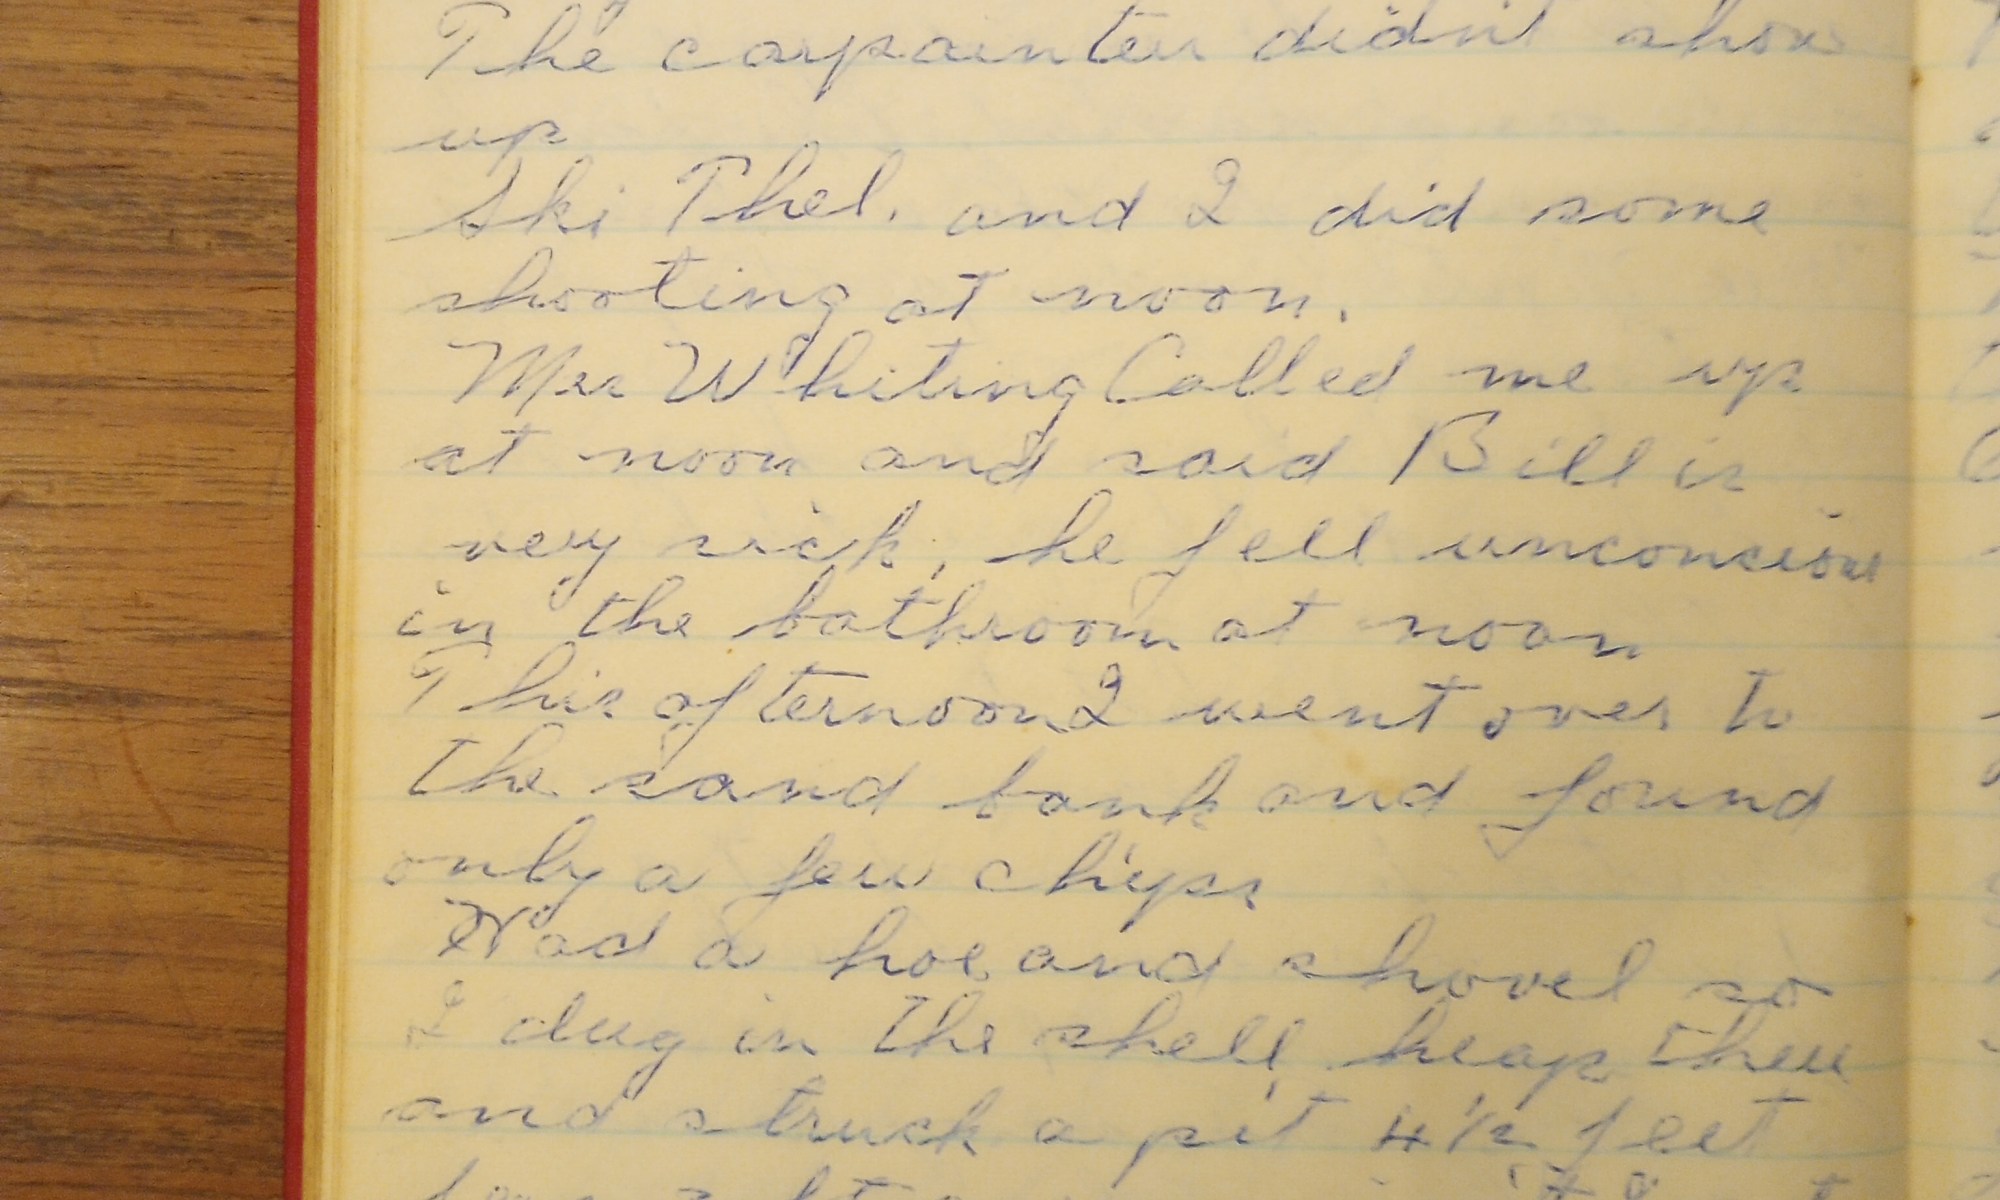 The carpainter didn't show
up
Ski Thel. and I did some
shooting at noon.
Mrs Whiting Called me up
at noon and said Bill is
very sick, he fell unconcious
in the bathroom at noon
This afternoon I went over to
the sand bank and found
only a few chips
Had a hoe and shovel so
I dug in the shell heap there
and struck a pit 4 1/2 feet